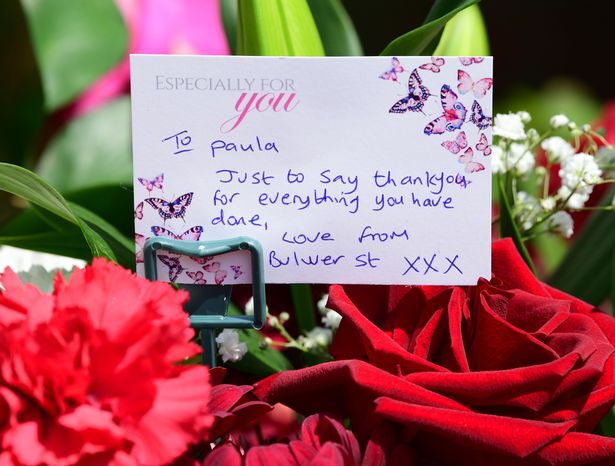 ESPECIALLY FOR
you
To Paula
Just to say thankyou
for everything you have
done,
Love from
Bulwer st xxx